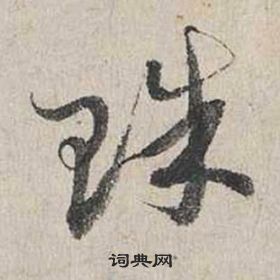 珠
词典网